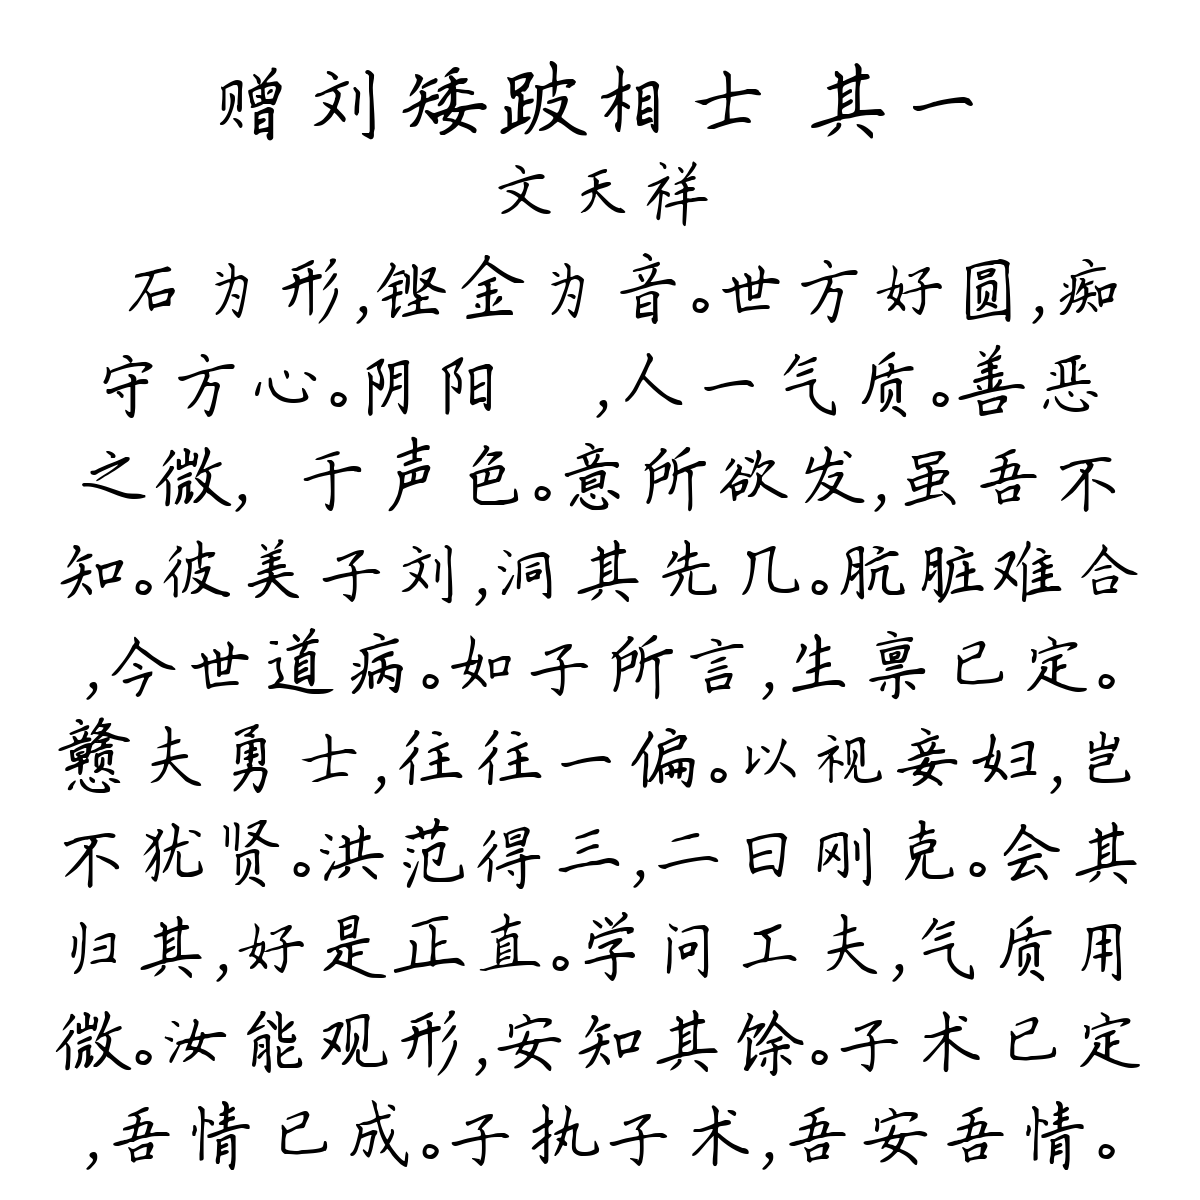 赠刘矮跛相士 其一
文天祥
石为形,铿金为音。世方好圆,痴
守方心。阴阳 ,人一气质。善恶
之微, 于声色。意所欲发,虽吾不
知。彼美子刘,洞其先几。肮脏难合
,今世道病。如子所言,生禀已定。
戆夫勇士,往往一偏。以视妾妇,岂
不犹贤。洪范得三,二曰刚克。会其
归其,好是正直。学问工夫,气质用
微。汝能观形,安知其馀。子术已定
,吾情已成。子执子术,吾安吾情。